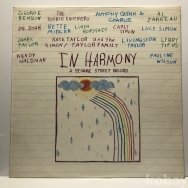 GEORGE BENSON
THE DOOBIE BROTHERS
ANTHONY QUINN & CHARLIE
AL JARREAU
DR. JOHN
BETTE MIDLER
LINDA RONSTADT
CARLY SIMON
LUCY SIMON
JAMES TAYLOR
KATE TAYLOR and the SIMON/TAYLOR FAMILY
LIVINGSTON TAYLOR
WENDY WALDMAN
PAULINE WILSON
IN HARMONY
A SESAME STREET RECORD